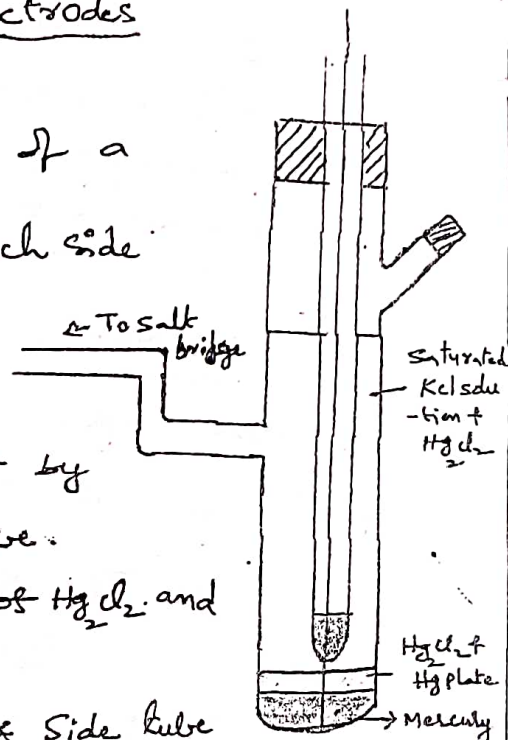 ectrodes
of a
ch side
← To salt
bridge
Saturated
Kcl solu
-tion +
Hg2cl2
by
ve.
of Hg2cl2. and
Hg2cl2 +
Hg plate
→ Mercury
Side tube